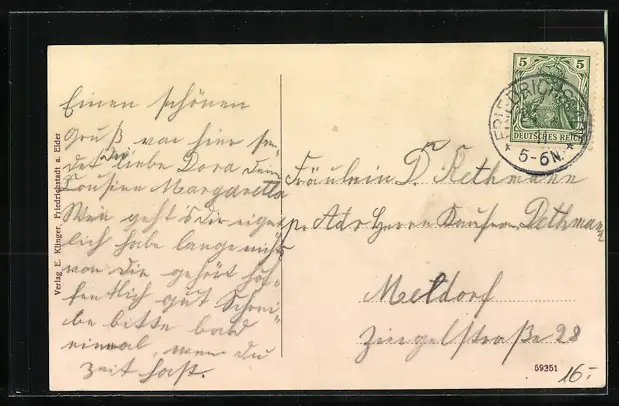 Einen schönen
Gruß von hier sen-
det Dir liebe Dora Deine
Cousine Margaretha
Wie geht's Dir eigent
lich habe lange nichts
von dir gehört hof-
fentlich gut Schrei-
be bitte bald
einmal, wenn du
Zeit hast.
Verlag E. Klinger, Friedrichstadt a. Eider
5 5
DEUTSCHES REICH
FRIEDRICHSTADT
* 5-6N. *
Fräulein D. Dethmann
p. Adr Herrn Kaufm. Dethmann
Meldorf
Ziegelstraße 28
59351
16.-